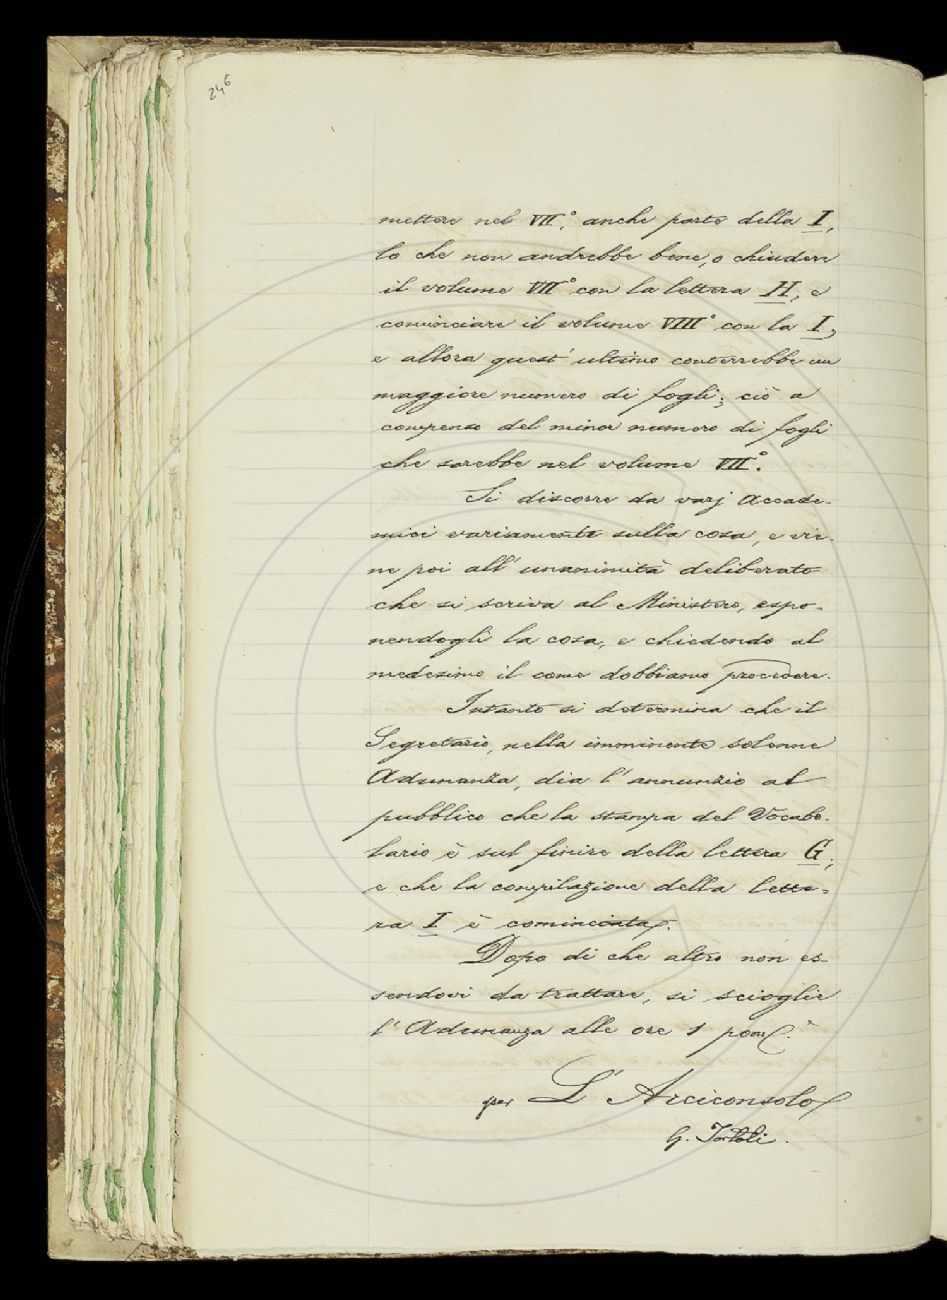 246
mettere nel VII.° anche parte della I,
lo che non andrebbe bene, o chiudere
il volume VII° con la lettera H, e
cominciare il volume VIII° con la I;
e allora quest' ultimo conterrebbe un
maggiore numero di fogli; ciò a
compenso del minor numero di fogli
che sarebbe nel volume VII°.
Si discorre da varj Accade-
mici variamente sulla cosa, e vie-
ne poi all' unanimità deliberato
che si scriva al Ministero, espo-
nendogli la cosa, e chiedendo al
medesimo il come dobbiamo procedere.
Intanto si determina che il
Segretario, nella imminente solenne
Adunanza, dia l' annunzio al
pubblico che la stampa del Vocabo-
lario è sul finire della lettera G;
e che la compilazione della lette-
ra I è cominciata.
Dopo di che altro non es-
sendovi da trattare, si scioglie
l' Adunanza alle ore 1 pom.
per L' Arciconsolo
G. Tortoli.